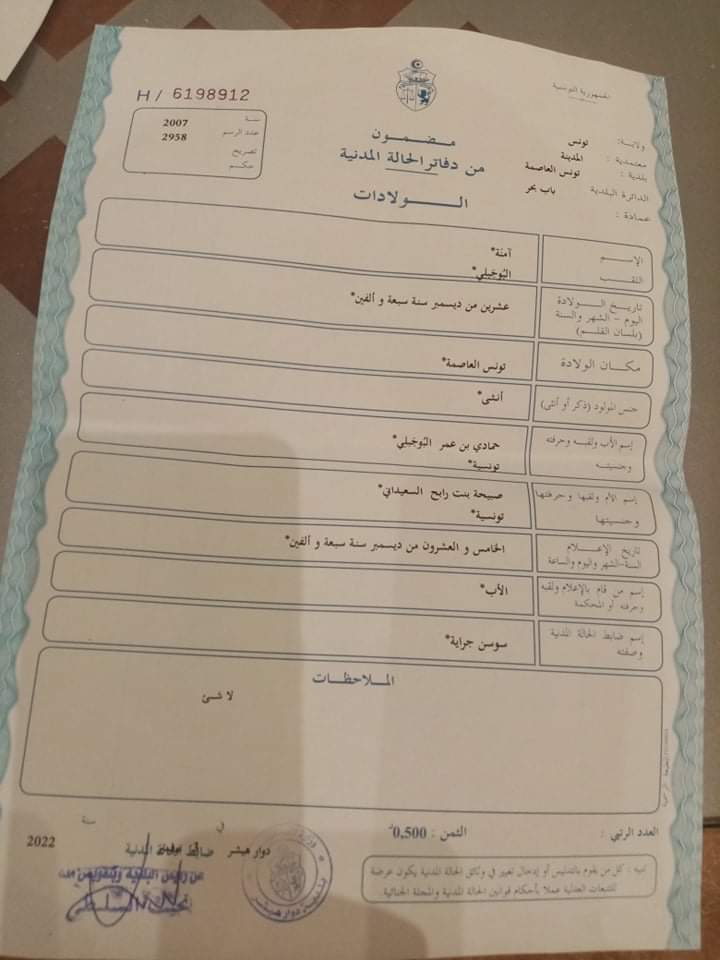 الجمهورية التونسية
H / 6198912
ولاية: تونس
معتمدية : المدينة
بلدية : تونس العاصمة
الدائرة البلدية باب بحر
عمادة :
مضمون
من دفاتر الحالة المدنية
الولادات
سنة 2007
عدد الرسم 2958
تصريح
حكم
الإسم آمنة*
اللقب البُوجْبلي*
تاريخ الولادة
اليوم - الشهر والسنة
(بلسان القلم)
عشرين من ديسمبر سنة سبعة و ألفين*
مكان الولادة تونس العاصمة*
جنس المولود (ذكر أو أنثى) أنثى*
إسم الأب ولقبه وحرفته حمادي بن عمر البُوجْبلي*
وجنسيته تونسية*
إسم الأم ولقبها وحرفتها صبيحة بنت رابح السعيداني*
وجنسيتها تونسية*
تاريخ الإعلام
السنة-الشهر واليوم والساعة
الخامس و العشرون من ديسمبر سنة سبعة و ألفين*
إسم من قام بالإعلام ولقبه
وحرفته أو المحكمة
الأب*
إسم ضابط الحالة المدنية
وصفته
سوسن جراية*
الملاحظات
لا شئ
العدد الرتبي :
الثمن : 0,500د
دوار هيشر في سنة 2022
ضابط الحالة المدنية
تنبيه : كل من يقوم بالتدليس أو إدخال تغيير في وثائق الحالة المدنية يكون عرضة
للتتبعات العدلية عملا بأحكام قوانين الحالة المدنية والمجلة الجنائية.
عن رئيس البلدية وبتفويض منه